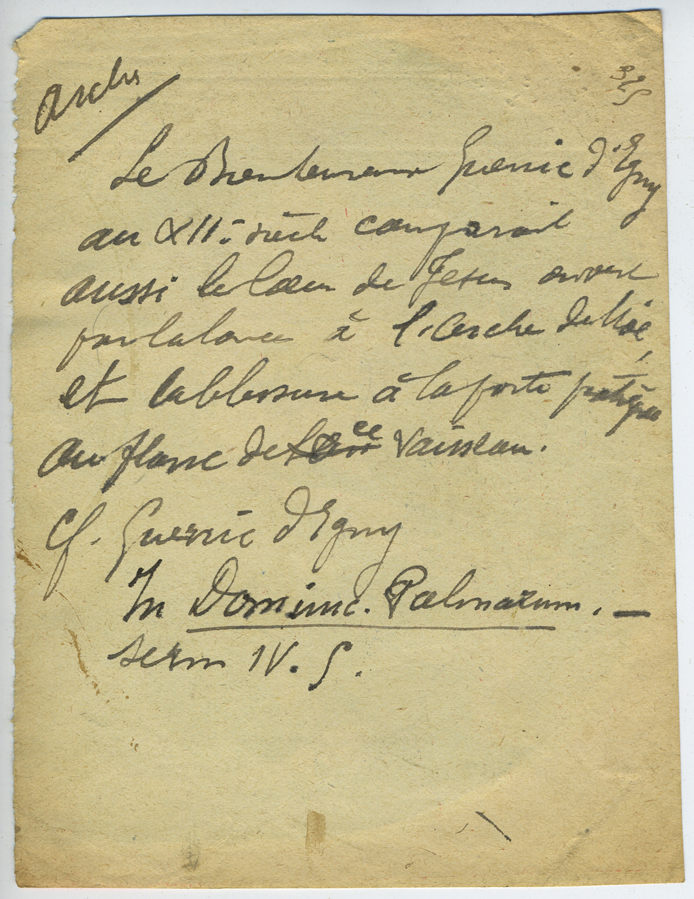 Arche
325
Le Bienheureux Guerric d'Igny
au XIIe siècle comparait
aussi le Cœur de Jésus ouvert
par la lance à l'Arche de Noé,
et la blessure à la porte pratiquée
au flanc de ce vaisseau.
cf. Guerric d'Igny
In Dominic. Palmarum. —
serm IV. 5.